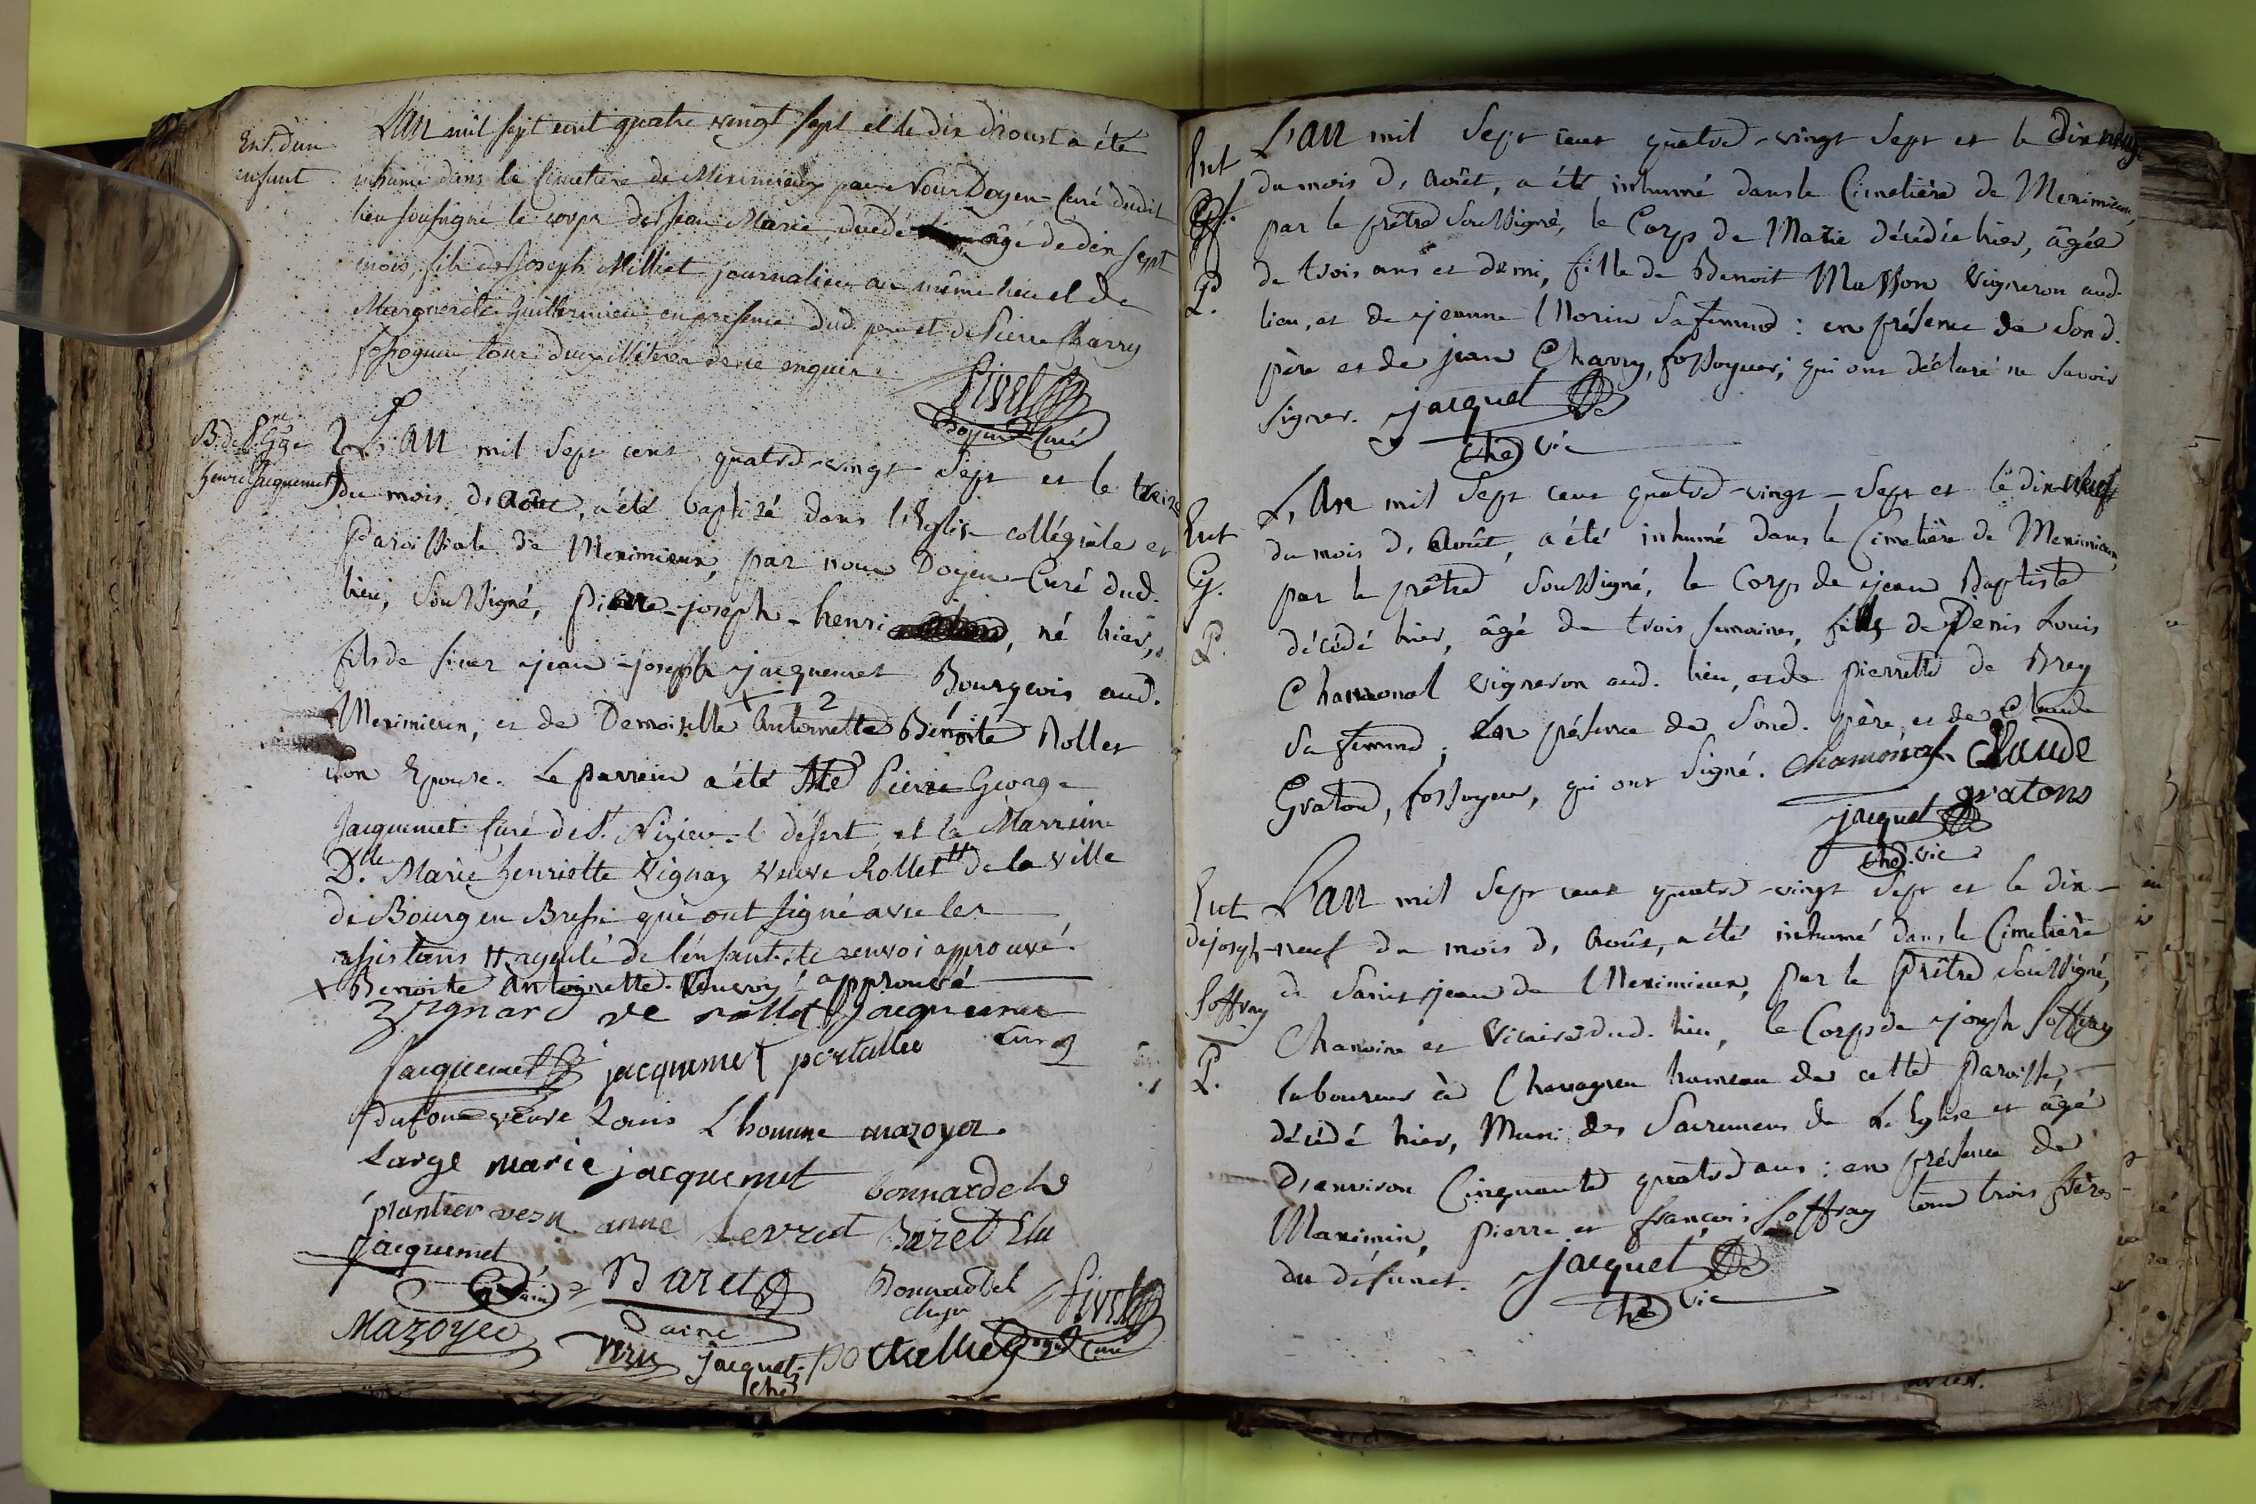 Ent. d'un
enfant
L'an mil sept cent quatre vingt sept et le dix d'aoust a été
inhumé dans le Cimetiere de Meximieux par Nous Doyen-Curé dudit
lieu soussigné le corps de Jean Marie, décédé âgé de dix sept
mois, fils de Joseph Milliet journalier au même lieu et de
Marguerite Guillermieu, en presence dud. pere et de Pierre Charry
fossoyeur, tous deux illiteres de ce enquis.
Fivel
Doyen Curé
B. de P. Gge
henri Jacquemet
L'an mil sept cent quatre-vingt-sept et le treize
du mois d'Août, a été baptisé dans l'Eglise collégiale et
Paroissiale de Meximieux, par nous Doyen-Curé dud.
lieu, Soussigné, Pierre-joseph-henri, né hier,
fils de sieur jean-joseph jacquemet Bourgeois aud.
Meximieux, et de Demoiselle Antoinette Bénoite Rollet
son Epouse. Le parrein a été Mre Pierre George
Jacquemet Curé de St. Nizier-le désert, et la Marreine
Dlle Marie henriette Vignay Veuve Rollet # de la ville
de Bourg en Bresse qui ont signé avec les
assistans # ayeule de l'enfant. le renvoi approuvé.
x Benoite Antoinette. Renvoy approuvé
Vignard ve rollet Jacquemet
Curé
Jacquemet jacquemet portallier
dufour veuve Louis L'homme mazoyer
Large marie jacquemet bonnardel
plantier veru anne Levrat Baret Elu
Jacquemet
Baret Bonnardel Fivel
Mazoyer ainé
veru Jacquet portallier Doyen Curé
che
Ent
L'an mil sept cent quatre-vingt sept et le dix neuf
du mois d'Août, a été inhumé dans le Cimetière de Meximieux,
par le prêtre soussigné, le Corps de Marie décédée hier, âgée
P. de trois ans et demi, fille de Benoit Masson Vigneron aud.
lieu, et de jeanne Morin sa femme : en présence de Son d.
père et de jean Charry, fossoyeur, qui ont déclaré ne savoir
signer. Jacquet
che vic
Ent
G.
P.
L'An mil sept cent quatre-vingt-sept et le dix-neuf
du mois d'Août, a été inhumé dans le Cimetière de Meximieux,
par le prêtre soussigné, le Corps de jean Baptiste
décédé hier, âgé de trois semaines, fils de Denis Louis
Chamonal Vigneron aud. lieu, et de pierrette de Brey
sa femme, En présence de Son d. père, et de Claude
Graton, fossoyeur, qui ont signé. Chamonal Claude
gratons
Jacquet
che. vic
Ent
de joseph
Soffray
P.
L'an mil sept cent quatre-vingt sept et le dix-
neuf du mois d'Août, a été inhumé dans le Cimetière
de Saint jean de Meximieux, par le Prêtre soussigné,
Chanoine et Vicaire dud. lieu, le Corps de joseph Soffray
laboureur à Chavagneu hameau de cette Paroisse,
décédé hier, Muni des Sacremens de L'Eglise et âgé
d'environ Cinquante quatre ans : en présence de
Maximin, Pierre et françois Soffray tous trois frères
du défunct. Jacquet
che vic